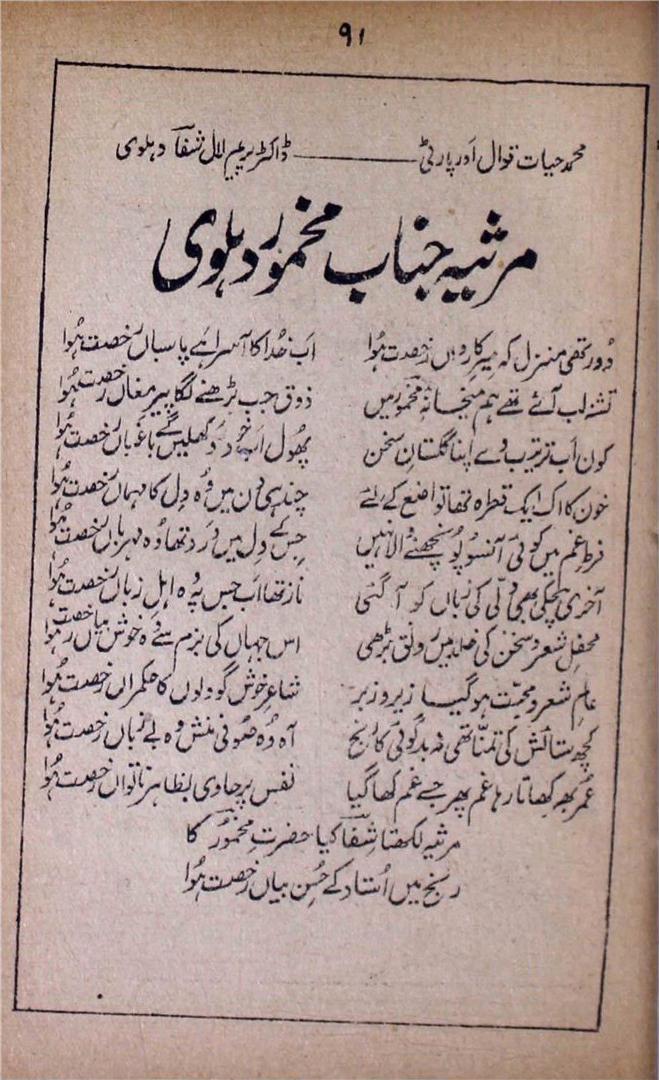 ۹۱
محمد حیات قوال اور پارٹی ——— ڈاکٹر پریم لال شفاؔ دہلوی
مرثیہ جناب مخمور دہلوی
دور تھی منزل کہ میرِ کارواں رخصت ہوا اب خدا کا آسرا ہے پاسباں رخصت ہوا
تشنہ لب آئے تھے ہم میخانۂ مخمور میں ذوق جب بڑھنے لگا پیرِ مغاں رخصت ہوا
کون اب ترتیب دے اپنا گلستانِ سخن پھول اب خود رو کھلیں گے باغباں رخصت ہوا
خون کا اک ایک قطرہ تھا تواضع کے لئے چند ہی دن میں وہ دل کا مہماں رخصت ہوا
فرطِ غم میں کوئی آنسو پونچھنے والا نہیں جس کے دل میں درد تھا وہ مہرباں رخصت ہوا
آخری ہچکی بھی دلی کی زباں کو آ گئی ناز تھا اب جس پہ وہ اہلِ زباں رخصت ہوا
محفلِ شعر و سخن کی خلد میں رونق بڑھی اس جہاں کی بزم سے وہ خوش بیاں رخصت ہوا
عالمِ شعر و محبت ہو گیا زیر و زبر شاعرِ خوش گو دلوں کا حکمراں رخصت ہوا
کچھ ستائش کی تمنا تھی نہ بدگوئی کا رنج آہ وہ صوفی منش وہ بے زباں رخصت ہوا
عمر بھر کھاتا رہا غم پھر جسے غم کھا گیا نفس پر حاوی بظاہر ناتواں رخصت ہوا
مرثیہ لکھتا شفاؔ کیا حضرتِ مخمورؔ کا
رنج میں استاد کے حسنِ بیاں رخصت ہوا